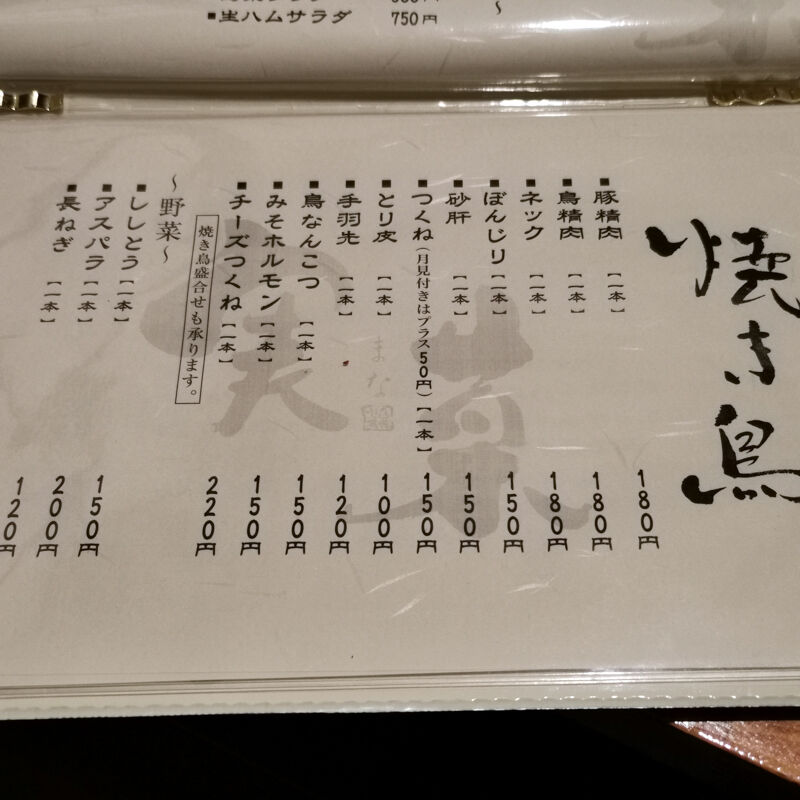 ■生ハムサラダ 750円
焼き鳥
■豚精肉【一本】 180円
■鳥精肉【一本】 180円
■ネック【一本】 180円
■ぼんじり【一本】 150円
■砂肝【一本】 150円
■つくね(月見付きはプラス50円)【一本】 150円
■とり皮【一本】 100円
■手羽先【一本】 120円
■鳥なんこつ【一本】 150円
■みそホルモン【一本】 150円
■チーズつくね【一本】 220円
焼き鳥盛合せも承ります。
～野菜～
■ししとう【一本】 150円
■アスパラ【一本】 200円
■長ねぎ【一本】 120円
菜
実
まな